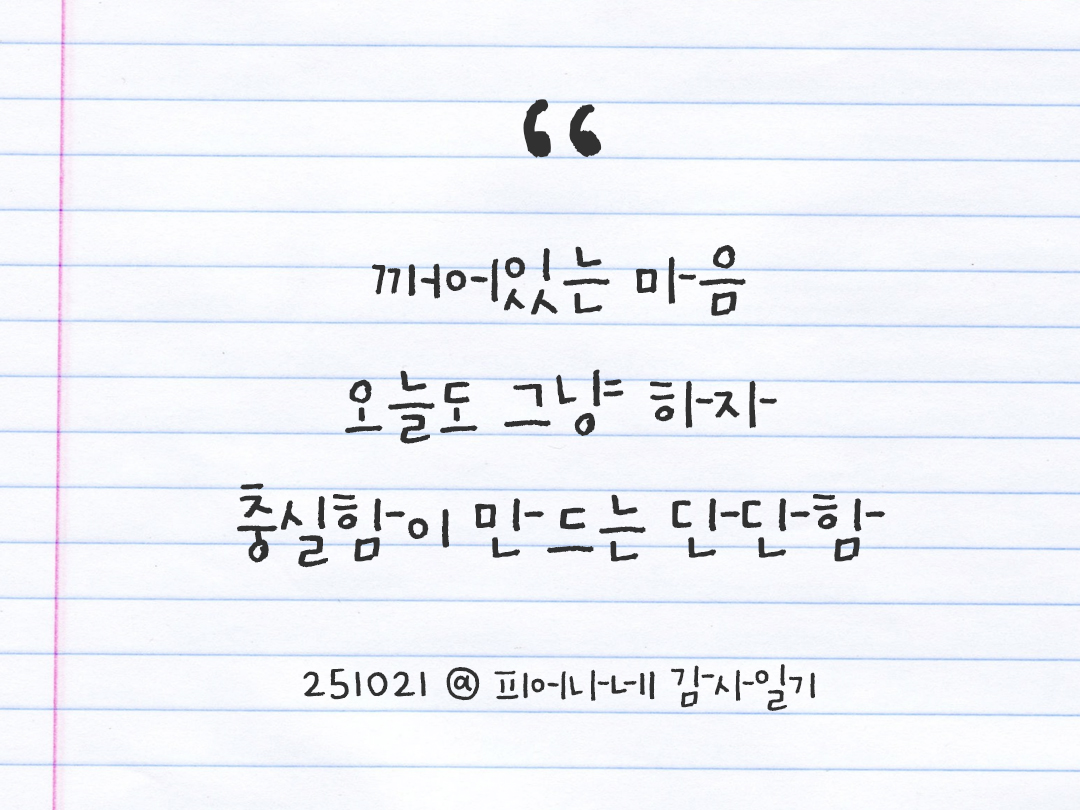 “
깨어있는 마음
오늘도 그냥 하자
충실함이 만드는 단단함
251021 @ 피어나네 감사일기